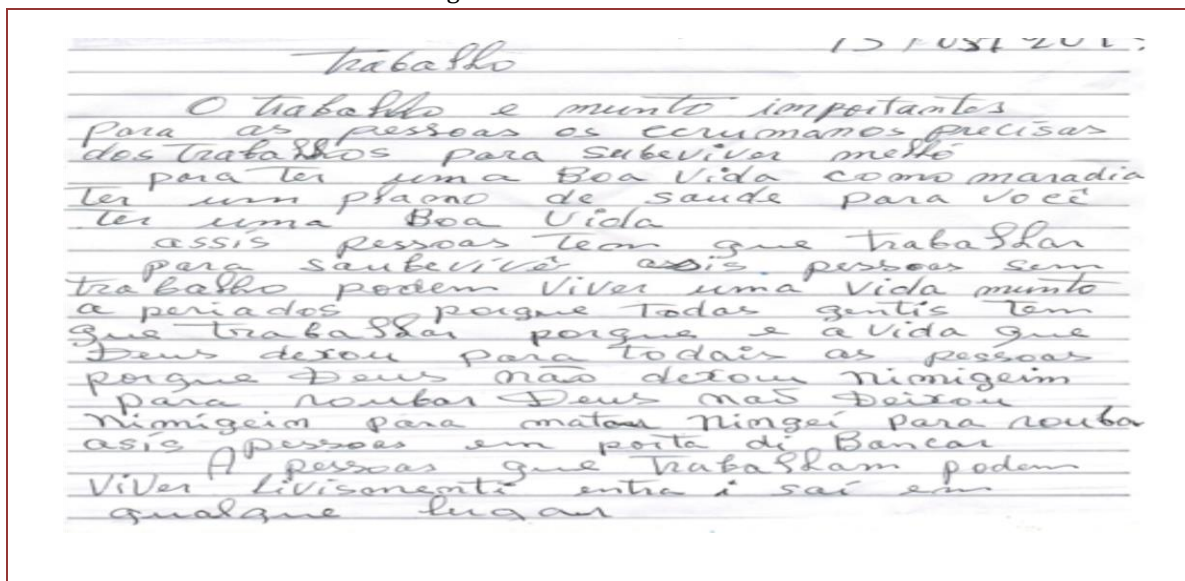 Trabalho
O trabalho e munto importantes
Para as pessoas os ecrumanos precisas
dos trabalhos para subeviver melhó
para ter uma Boa Vida como maradia
ter um plaono de saude para você
ter uma Boa Vida
assis pessoas teom que trabalhar
para saubevivê assis pessoas sem
trabalho podem viver uma vida munto
a periados porque Todas gentis tem
que trabalhar porque e a vida que
Deus dexou para todais as pessoas
porque Deus não dexou nimigeim
para roubar Deus não Deixou
nimigeim para matar ningei para rouba
asis pessoas em porta di Bancar
A pessoas que trabalham podem
ViVer livisomenti entra i saí em
qualque lugar